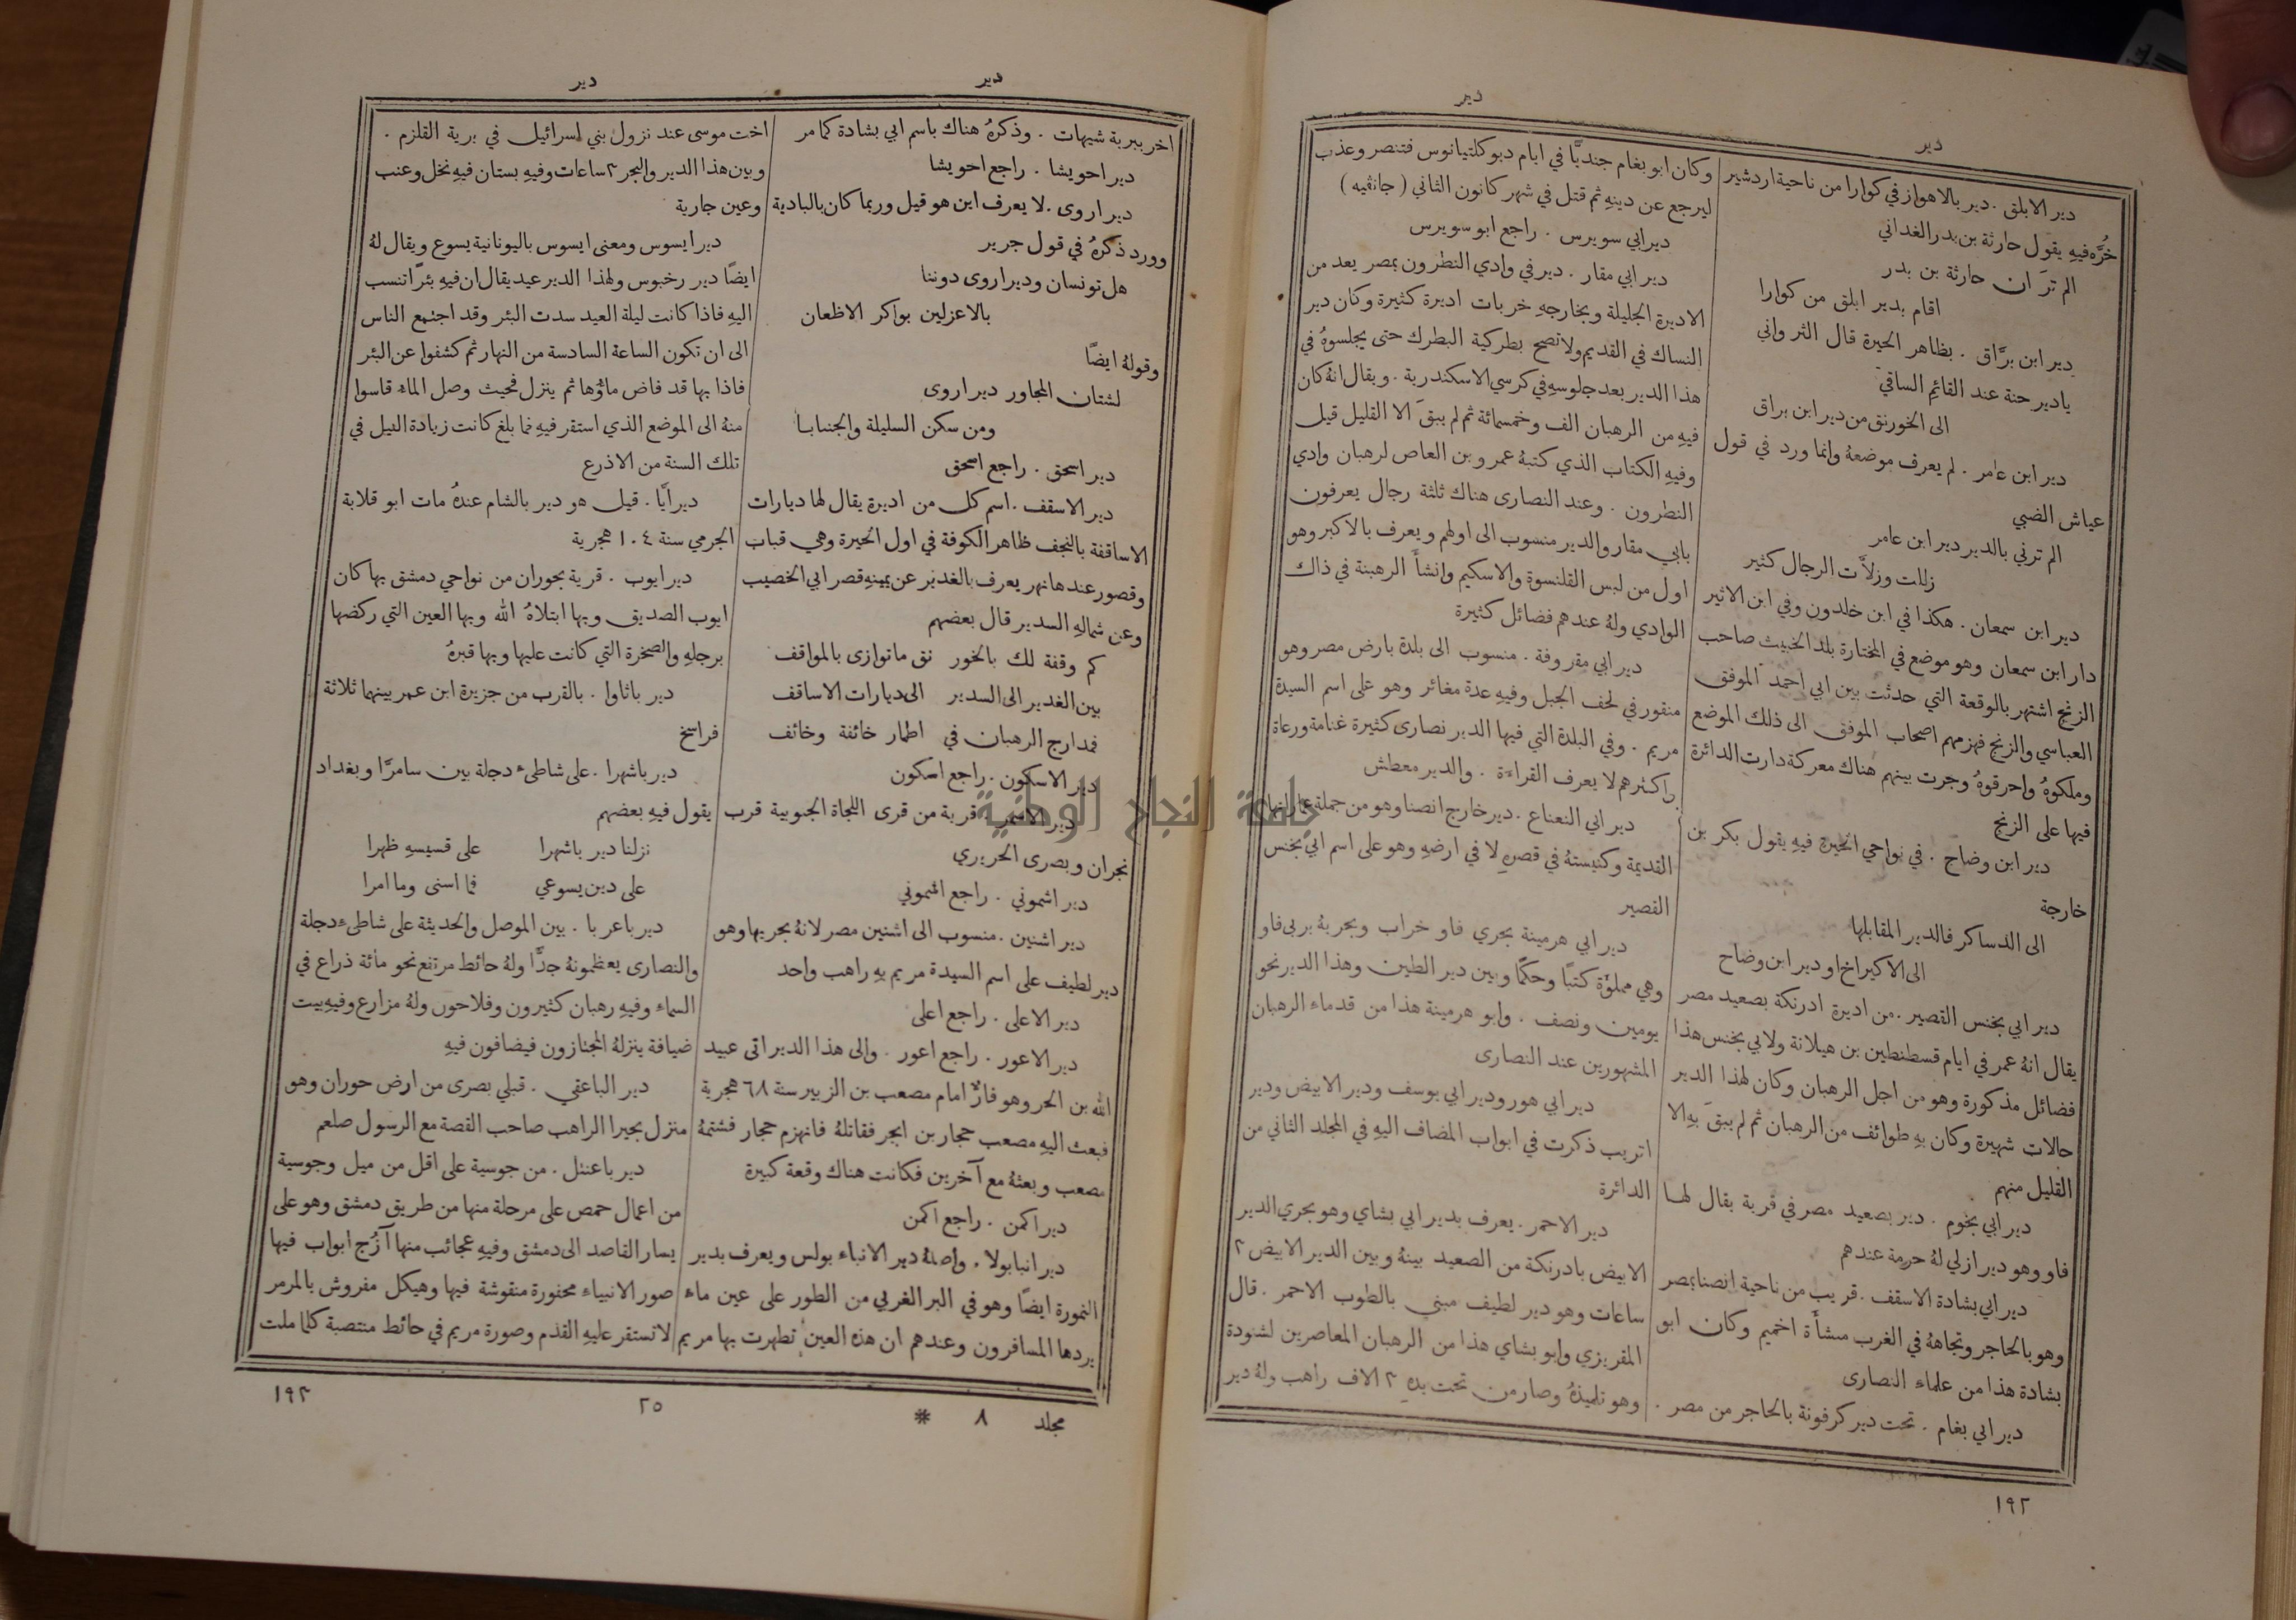 دير
دير
دير الابلق . دير بالاهواز في كوارا من ناحية اردشير
خُرَّه فيهِ يقول حارثة بن بدر الغداني
الم ترَ ان حارثة بن بدر
اقام بدير ابلق من كوارا
دير ابن برَّاق . بظاهر الحيرة قال الثرواني
يادير حنة عند القائم الساقي
الى الخورنق من دير ابن براق
دير ابن عامر . لم يعرف موضعهُ وانما ورد في قول
عياش الضبي
الم ترني بالدير دير ابن عامر
زللت وزلاَّت الرجال كثير
دير ابن سمعان . هكذا في ابن خلدون وفي ابن الاثير
دار ابن سمعان وهو موضع في المختارة بلد الخبيث صاحب
الزنج اشتهر بالوقعة التي حدثت بين ابي احمد الموفق
العباسي والزنج فهزمهم اصحاب الموفق الى ذلك الموضع
وملكوهُ واحرقوهُ وجرت بينهم هناك معركة دارت الدائرة
فيها على الزنج
دير ابن وضاح . في نواحي الحيرة فيهِ يقول بكر بن
خارجة
الى الدساكر فالدير المقابلها
الى الاكيراخ او دير ابن وضاح
دير ابي بخنس القصير . من اديرة ادرنكة بصعيد مصر
يقال انهُ عمر في ايام قسطنطين بن هيلانة ولابي بخنس هذا
فضائل مذكورة وهو من اجل الرهبان وكان لهذا الدير
حالات شهيرة وكان بهِ طوائف من الرهبان ثم لم يبقَ بهِ الا
القليل منهم
دير ابي بخوم . دير بصعيد مصر في قرية يقال لها
فاو وهو دير ازلي لهُ حرمة عندهم
دير ابي بشادة الاسقف . قريب من ناحية انصنا بمصر
وهو بالحاجر وتجاههُ في الغرب منشأَة اخميم وكان ابو
بشادة هذا من علماء النصارى
دير ابي بغام . تحت دير كرفونة بالحاجر من مصر .
وكان ابو بغام جنديًّا في ايام ديوكلتيانوس فتنصر وعذب
ليرجع عن دينهِ ثم قتل في شهر كانون الثاني ( جانفيه )
دير ابي سويرس . راجع ابو سويرس
دير ابي مقار . دير في وادي النطرون بمصر يعد من
الاديرة الجليلة وبخارجهِ خربات اديرة كثيرة وكان دير
النساك في القديم ولا تصح بطركية البطرك حتى يجلسوهُ في
هذا الدير بعد جلوسهِ في كرسي الاسكندرية . ويقال انهُ كان
فيهِ من الرهبان الف وخمسمائة ثم لم يبقَ الا القليل قيل
وفيهِ الكتاب الذي كتبهُ عمرو بن العاص لرهبان وادي
النطرون . وعند النصارى هناك ثلثة رجال يعرفون
بابي مقار والدير منسوب الى اولهم ويعرف بالاكبر وهو
اول من لبس القلنسوة والاسكيم وانشأَ الرهبنة في ذاك
الوادي ولهُ عندهم فضائل كثيرة
دير ابي مقروفة . منسوب الى بلدة بارض مصر وهو
منقور في لحف الجبل وفيهِ عدة مغائر وهو على اسم السيدة
مريم . وفي البلدة التي فيها الدير نصارى كثيرة غنامة ورعاة
واكثرهم لا يعرف القراءة . والدير معطش
دير ابي النعناع . دير خارج انصنا وهو من جملة عماراتها
القديمة وكنيستهُ في قصرهِ لا في ارضهِ وهو على اسم ابي بخنس
القصير
دير ابي هرمينة بحري فاو خراب وبحريهُ بربى فاو
وهي مملؤَة كتبًا وحكمًا وبين دير الطين وهذا الدير نحو
يومين ونصف . وابو هرمينة هذا من قدماء الرهبان
المشهورين عند النصارى
دير ابي هور ودير ابي يوسف ودير الابيض ودير
اتريب ذكرت في ابواب المضاف اليهِ في المجلد الثاني من
الدائرة
دير الاحمر . يعرف بدير ابي بشاي وهو بحري الدير
الابيض بادرنكة من الصعيد بينهُ وبين الدير الابيض ٣
ساعات وهو دير لطيف مبني بالطوب الاحمر . قال
المقريزي وابو بشاي هذا من الرهبان المعاصرين لشنودة
وهو تلميذهُ وصار من تحت يدهِ ٣ الاف راهب ولهُ دير
١٩٢
دير
دير
اخر ببرية شيهات . وذكرهُ هناك باسم ابي بشادة كما مر
دير احويشا . راجع احويشا
دير اروى . لا يعرف اين هو قيل وربما كان بالبادية
وورد ذكرهُ في قول جرير
هل تونسان ودير اروى دوننا
بالاعزلين بواكر الاظعان
وقولهُ ايضًا
لشتان المجاور دير اروى
ومن سكن السليلة والجنابا
دير اسحق . راجع اسحق
دير الاسقف . اسم كل من اديرة يقال لها ديارات
الاساقفة بالنجف ظاهر الكوفة في اول الحيرة وهي قباب
وقصور عندها نهر يعرف بالغدير عن يمينهِ قصر ابي الخصيب
وعن شمالهِ السدير قال بعضهم
كم وقفة لك بالخور نق ما توازى بالمواقف
بين الغدير الى السدير الى ديارات الاساقف
فمدارج الرهبان في اطمار خائفة وخائف
دير الاسكون . راجع اسكون
قرية من قرى اللجاة الجنوبية قرب
نجران وبصرى الحريري
دير اشموني . راجع اشموني
دير اشنين . منسوب الى اشنين مصر لانهُ بحريها وهو
دير لطيف على اسم السيدة مريم بهِ راهب واحد
دير الاعلى . راجع اعلى
دير الاعور . راجع اعور . والى هذا الدير اتى عبيد
الله بن الحر وهو فارٌّ امام مصعب بن الزبير سنة ٦٨ هجرية
فبعث اليهِ مصعب حجار بن ابجر فقاتلهُ فانهزم حجار فشتمهُ
مصعب وبعثهُ مع آخرين فكانت هناك وقعة كبيرة
دير اكمن . راجع اكمن
دير انبابولا . واصلهُ دير الانباء بولس ويعرف بدير
النمورة ايضًا وهو في البر الغربي من الطور على عين ماء
يردها المسافرون وعندهم ان هذه العين تطهرت بها مريم
اخت موسى عند نزول بني اسرائيل في برية القلزم .
وبين هذا الدير والبحر ٣ ساعات وفيهِ بستان فيهِ نخل وعنب
وعين جارية
دير ايسوس ومعنى ايسوس باليونانية يسوع ويقال لهُ
ايضًا دير رخبوس ولهذا الدير عيد يقال ان فيهِ بئرًا تنسب
اليهِ فاذا كانت ليلة العيد سدت البئر وقد اجتمع الناس
الى ان تكون الساعة السادسة من النهار ثم كشفوا عن البئر
فاذا بها قد فاض ماؤها ثم ينزل فحيث وصل الماء قاسوا
منهُ الى الموضع الذي استقر فيهِ فما بلغ كانت زيادة النيل في
تلك السنة من الاذرع
دير ايَّا . قيل هو دير بالشام عندهُ مات ابو قلابة
الجرمي سنة ١٠٤ هجرية
دير ايوب . قرية بحوران من نواحي دمشق بها كان
ايوب الصديق وبها ابتلاهُ الله وبها العين التي ركضها
برجلهِ والصخرة التي كانت عليها وبها قبرهُ
دير باثاوا . بالقرب من جزيرة ابن عمر بينهما ثلاثة
فراسخ
دير باشهرا . على شاطىء دجلة بين سامرَّا وبغداد
يقول فيهِ بعضهم
نزلنا دير باشهرا على قسيسهِ ظهرا
على دين يسوعي فما اسنى وما امرا
دير باعربا . بين الموصل والحديثة على شاطىء دجلة
والنصارى يعظمونهُ جدًّا ولهُ حائط مرتفع نحو مائة ذراع في
السماء وفيهِ رهبان كثيرون وفلاحون ولهُ مزارع وفيهِ بيت
ضيافة ينزلهُ المجتازون فيضافون فيهِ
دير الباعقي . قبلي بصرى من ارض حوران وهو
منزل بحيرا الراهب صاحب القصة مع الرسول صلعم
دير باعنتل . من جوسية على اقل من ميل وجوسية
من اعمال حمص على مرحلة منها من طريق دمشق وهو على
يسار القاصد الى دمشق وفيهِ عجائب منها آزُج ابواب فيها
صور الانبياء محفورة منقوشة فيها وهيكل مفروش بالمرمر
لا تستقر عليهِ القدم وصورة مريم في حائط منتصبة كلما ملت
مجلد ٨ *
٢٥
١٩٣
جامعة النجاح الوطنية